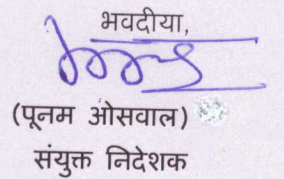 भवदीया,
(पूनम ओसवाल)
संयुक्त निदेशक